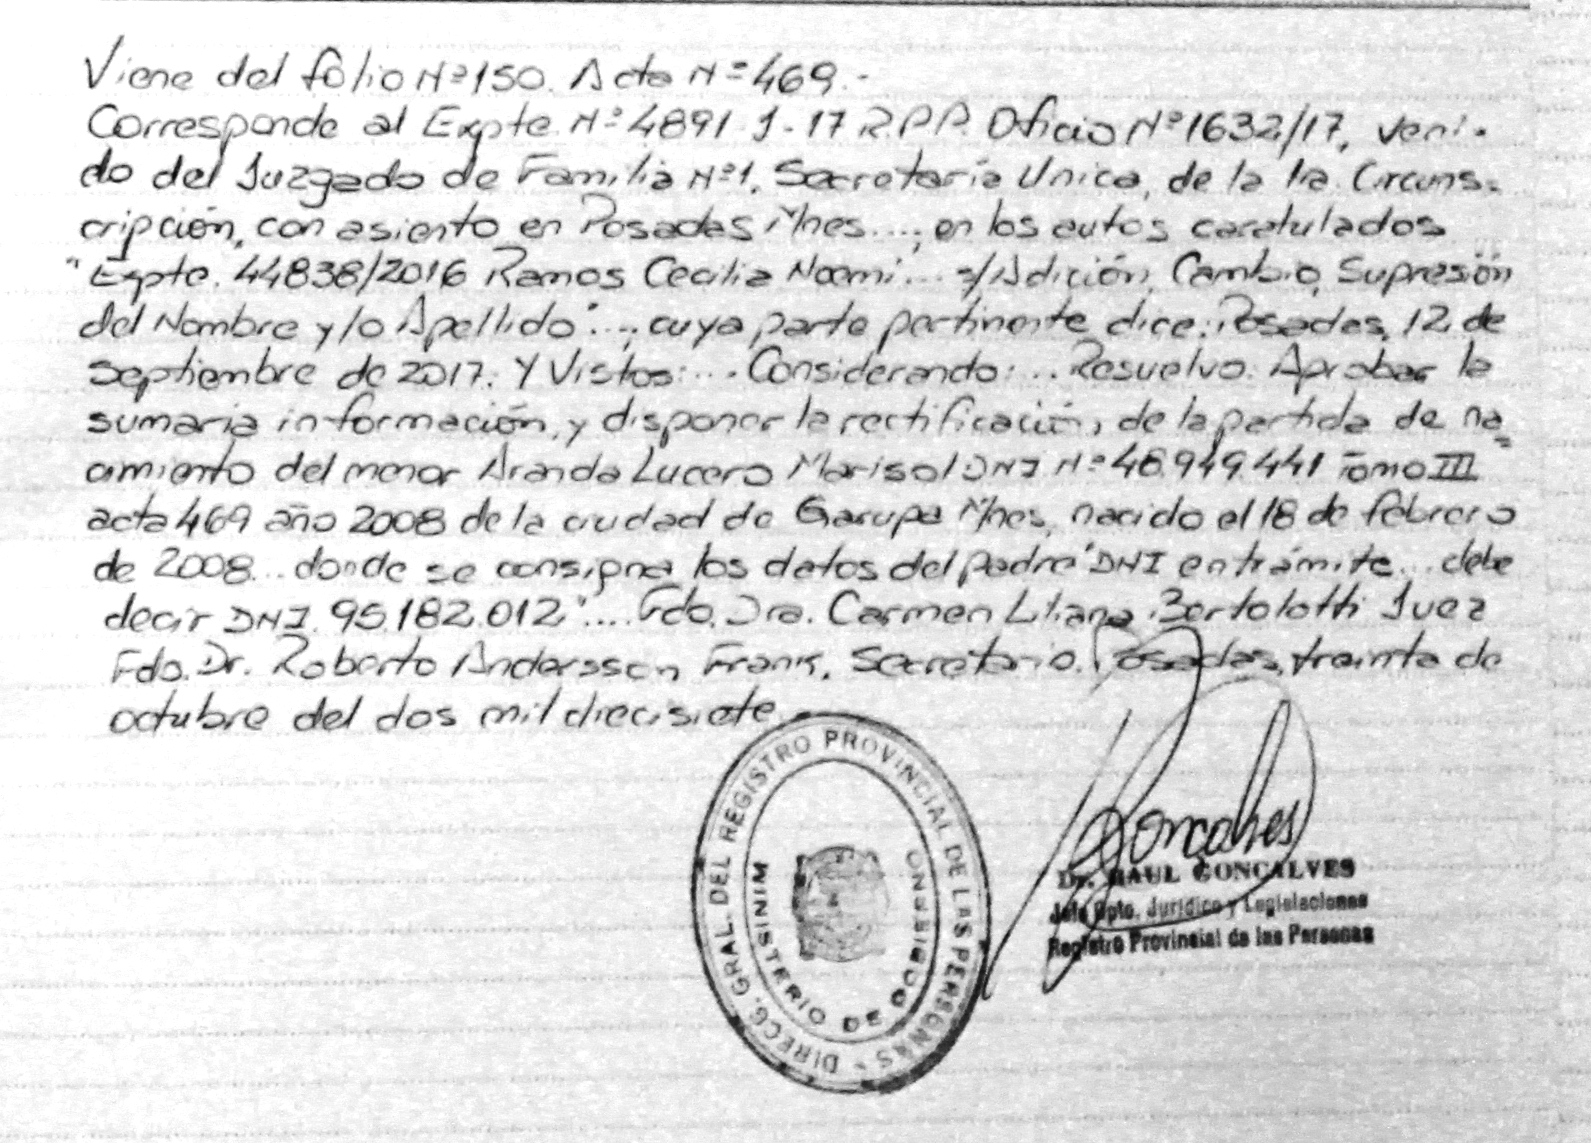 Viene del folio Nº 150. Acta Nº 469.-
Corresponde al Expte. Nº 4891-J-17 R.P.P. Oficio Nº 1632/17, veni-
do del Juzgado de Familia Nº1, Secretaría Unica, de la 1ra. Circuns-
cripción, con asiento en Posadas Mnes...; en los autos caratulados
"Expte. 44838/2016 Ramos Cecilia Noemi... s/Adición, Cambio, Supresión
del Nombre y/o Apellido"...; cuya parte pertinente dice: Posadas, 12 de
septiembre de 2017: Y Vistos:... Considerando:... Resuelvo: Aprobar la
sumaria información, y disponer la rectificación, de la partida de na-
cimiento del menor Aranda Lucero Marisol DNI Nº 48.949.441 Tomo III
acta 469 año 2008 de la ciudad de Garupa Mnes, nacido el 18 de febrero
de 2008... donde se consigna los datos del padre "DNI en trámite... debe
decir DNI. 95.182.012"... Fdo. Dra. Carmen Liliana Bertolotti Juez
Fdo. Dr. Roberto Andersson Frank, Secretario. Posadas, treinta de
octubre del dos mil diecisiete.-
DIRECC. GRAL. DEL REGISTRO PROVINCIAL DE LAS PERSONAS -
MINISTERIO DE GOBIERNO
Goncalves
Dr. RAUL GONCALVES
Jefe Dpto. Jurídico y Legislaciones
Registro Provincial de las Personas